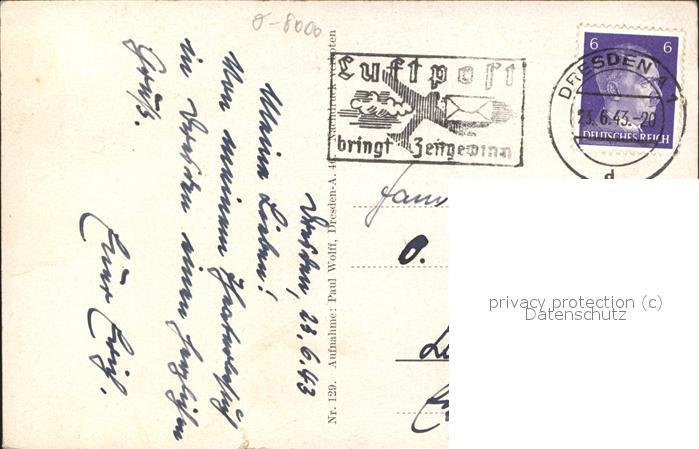 σ-8000
Luftpost
bringt Zeitgewinn
6 6
DEUTSCHES REICH
DRESDEN A 1
23.6.43.-20
d
Dresden, 23.6.43
Meine Lieben!
Von meinem
in Dresden einen herzlichen
Gruß.
Euer Erich.
Nr. 129. Aufnahme: Paul Wolff, Dresden-A. Nachdruck verboten
Fam
O.
privacy protection (c)
Datenschutz